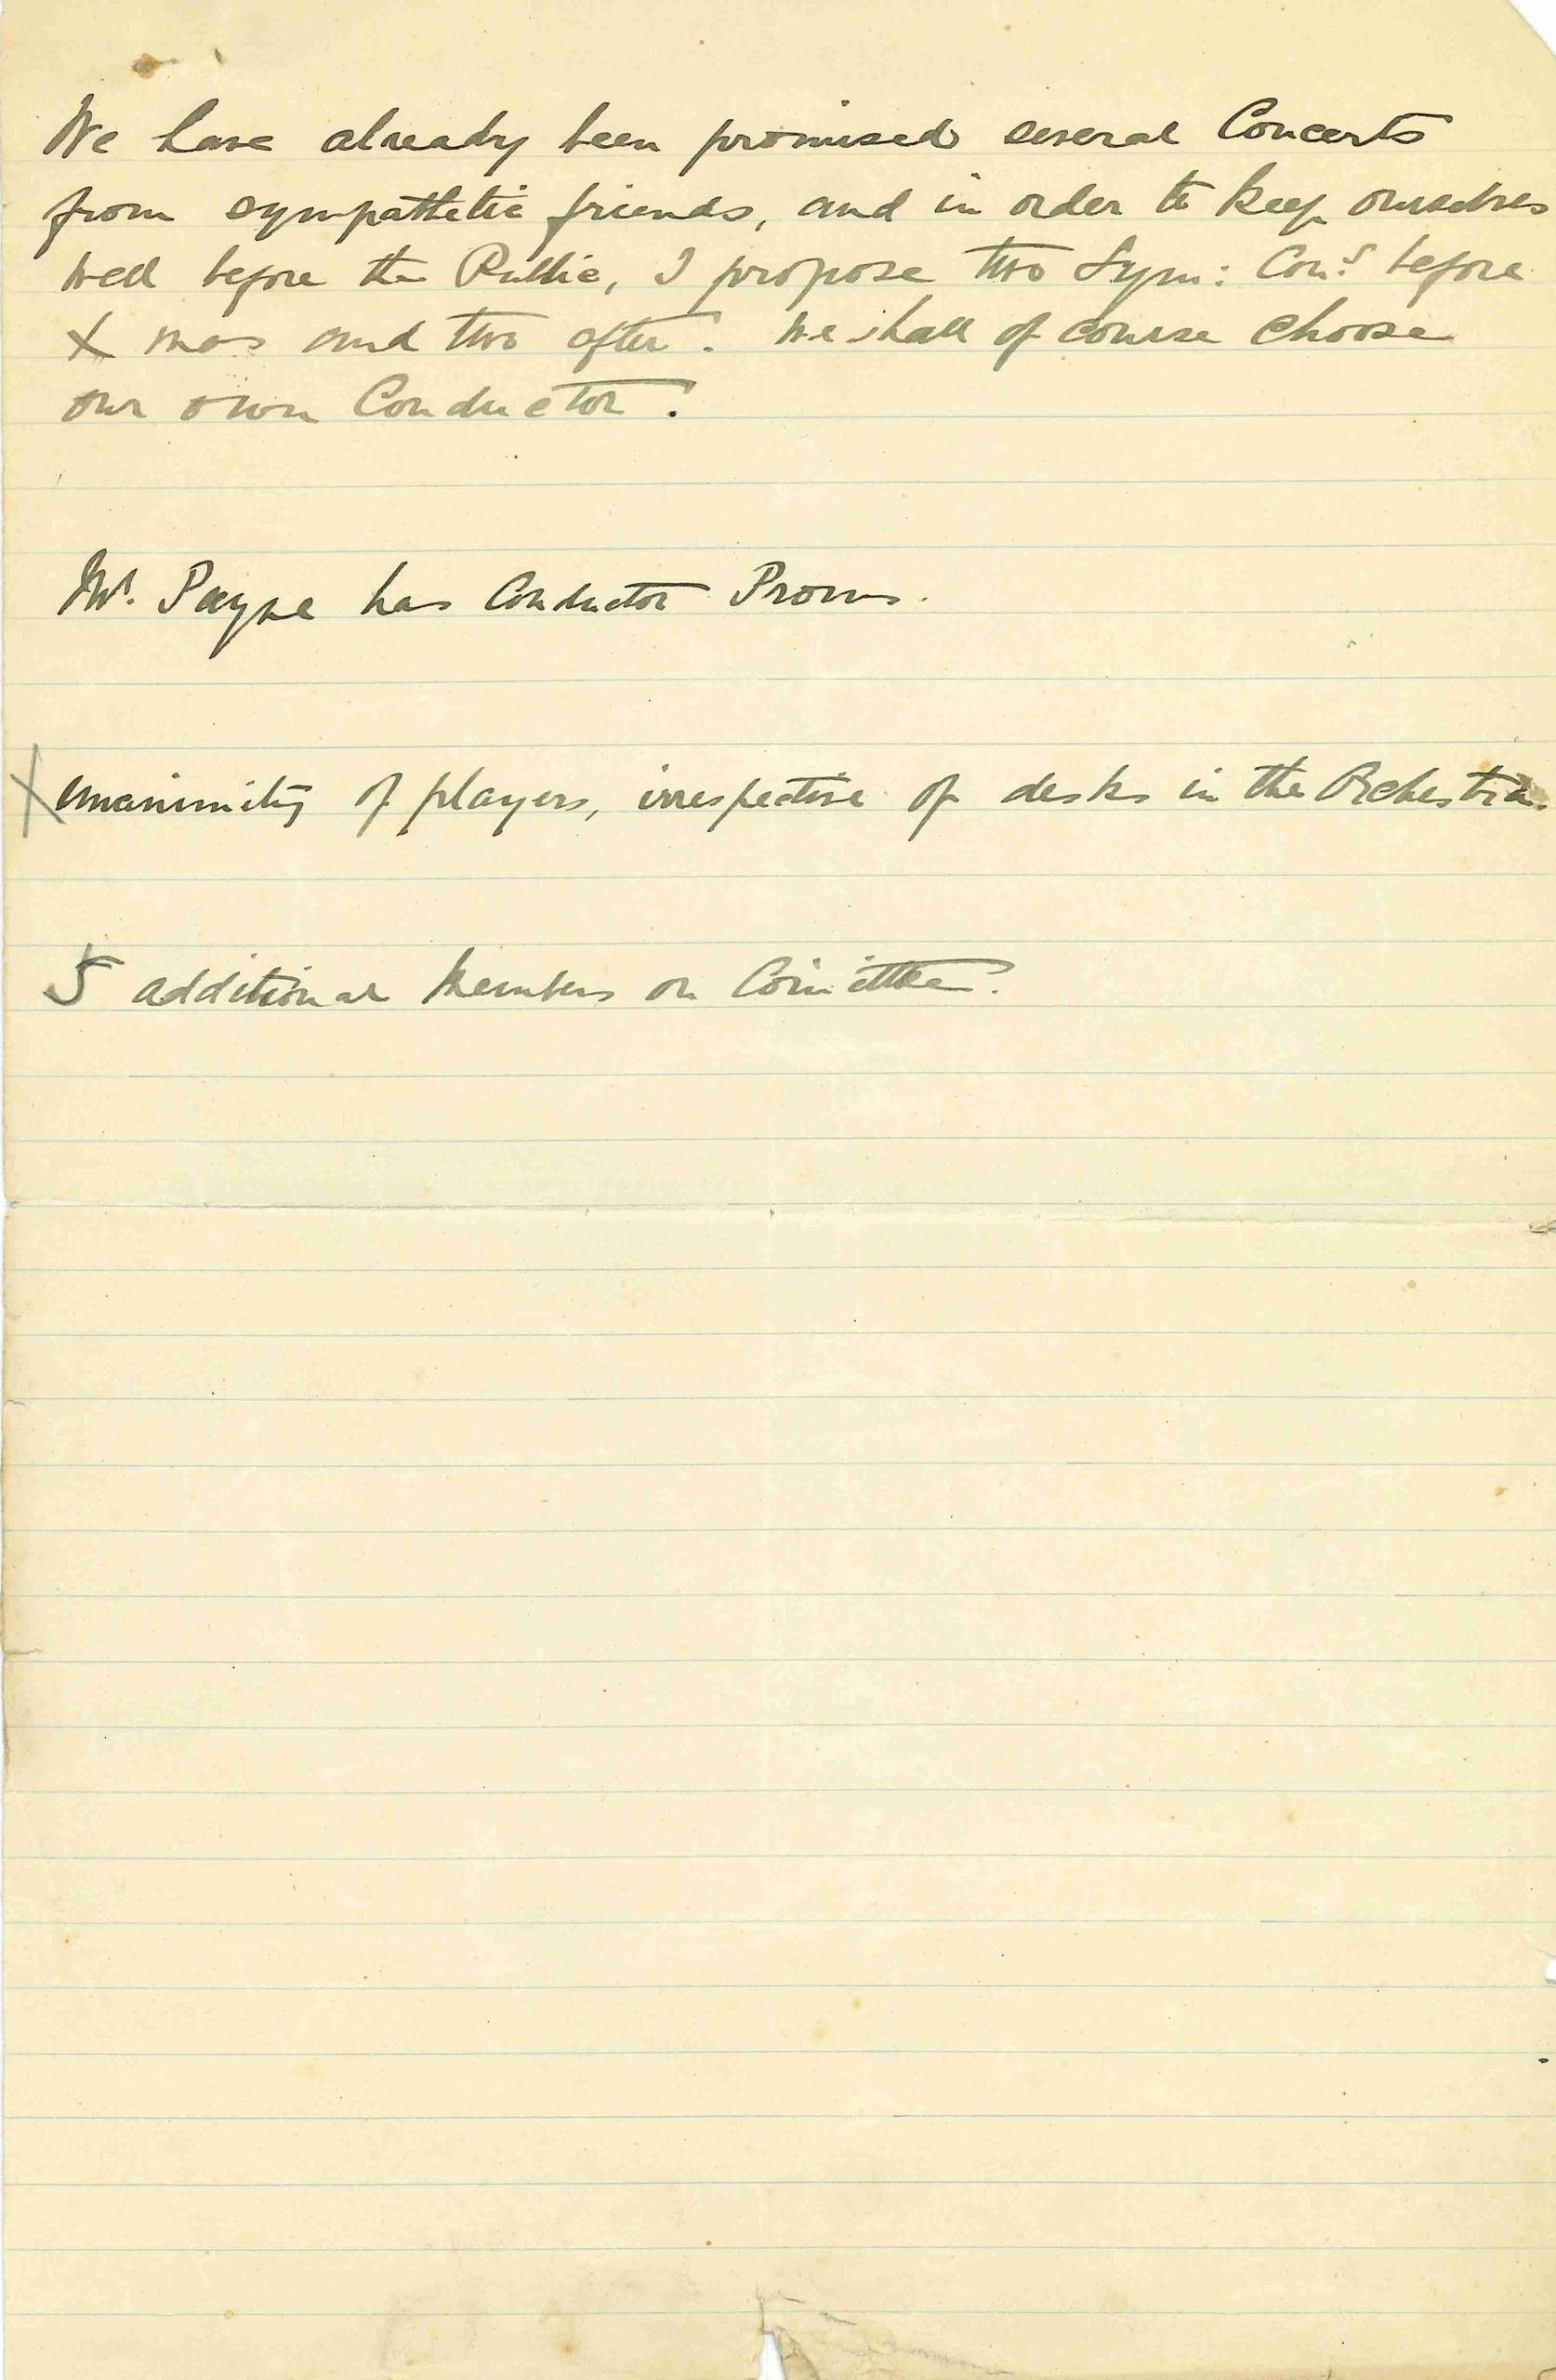 We have already been promised several Concerts
from sympathetic friends, and in order to keep ourselves
well before the Public, I propose two Sym: Conˢ before
X mas and two after. We shall of course choose
our own Conductor.
Mr. Payne has Conductor Proms.
X unanimity of players, irrespective of desks in the Orchestra.
5 additional Members on Comittee.